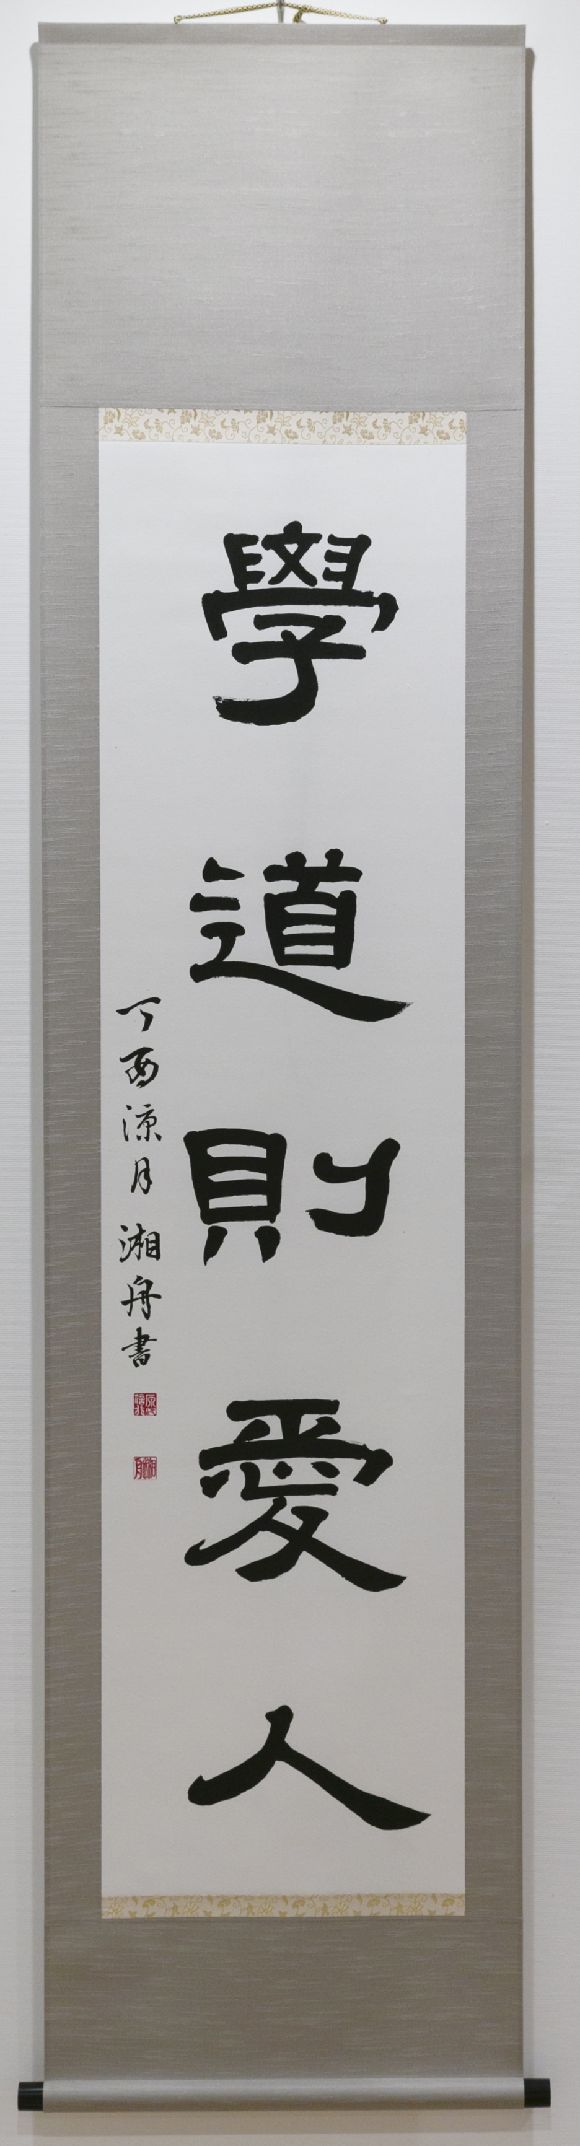 學道則愛人
丁酉涼月 湘舟書